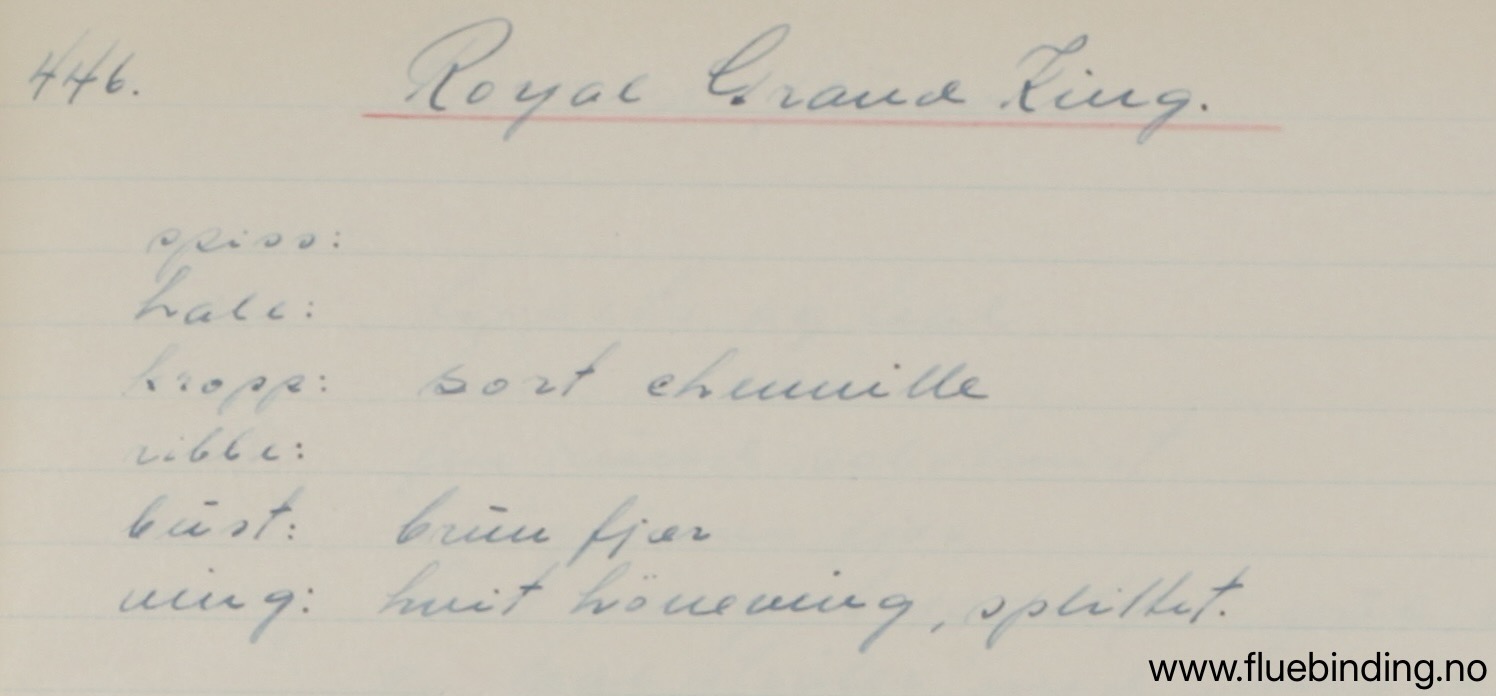 446. Royal Grand King.
spiss:
hale:
kropp: sort chenille
ribbe:
bust: brun fjær
ving: hvit höneving, splittet.
www.fluebinding.no